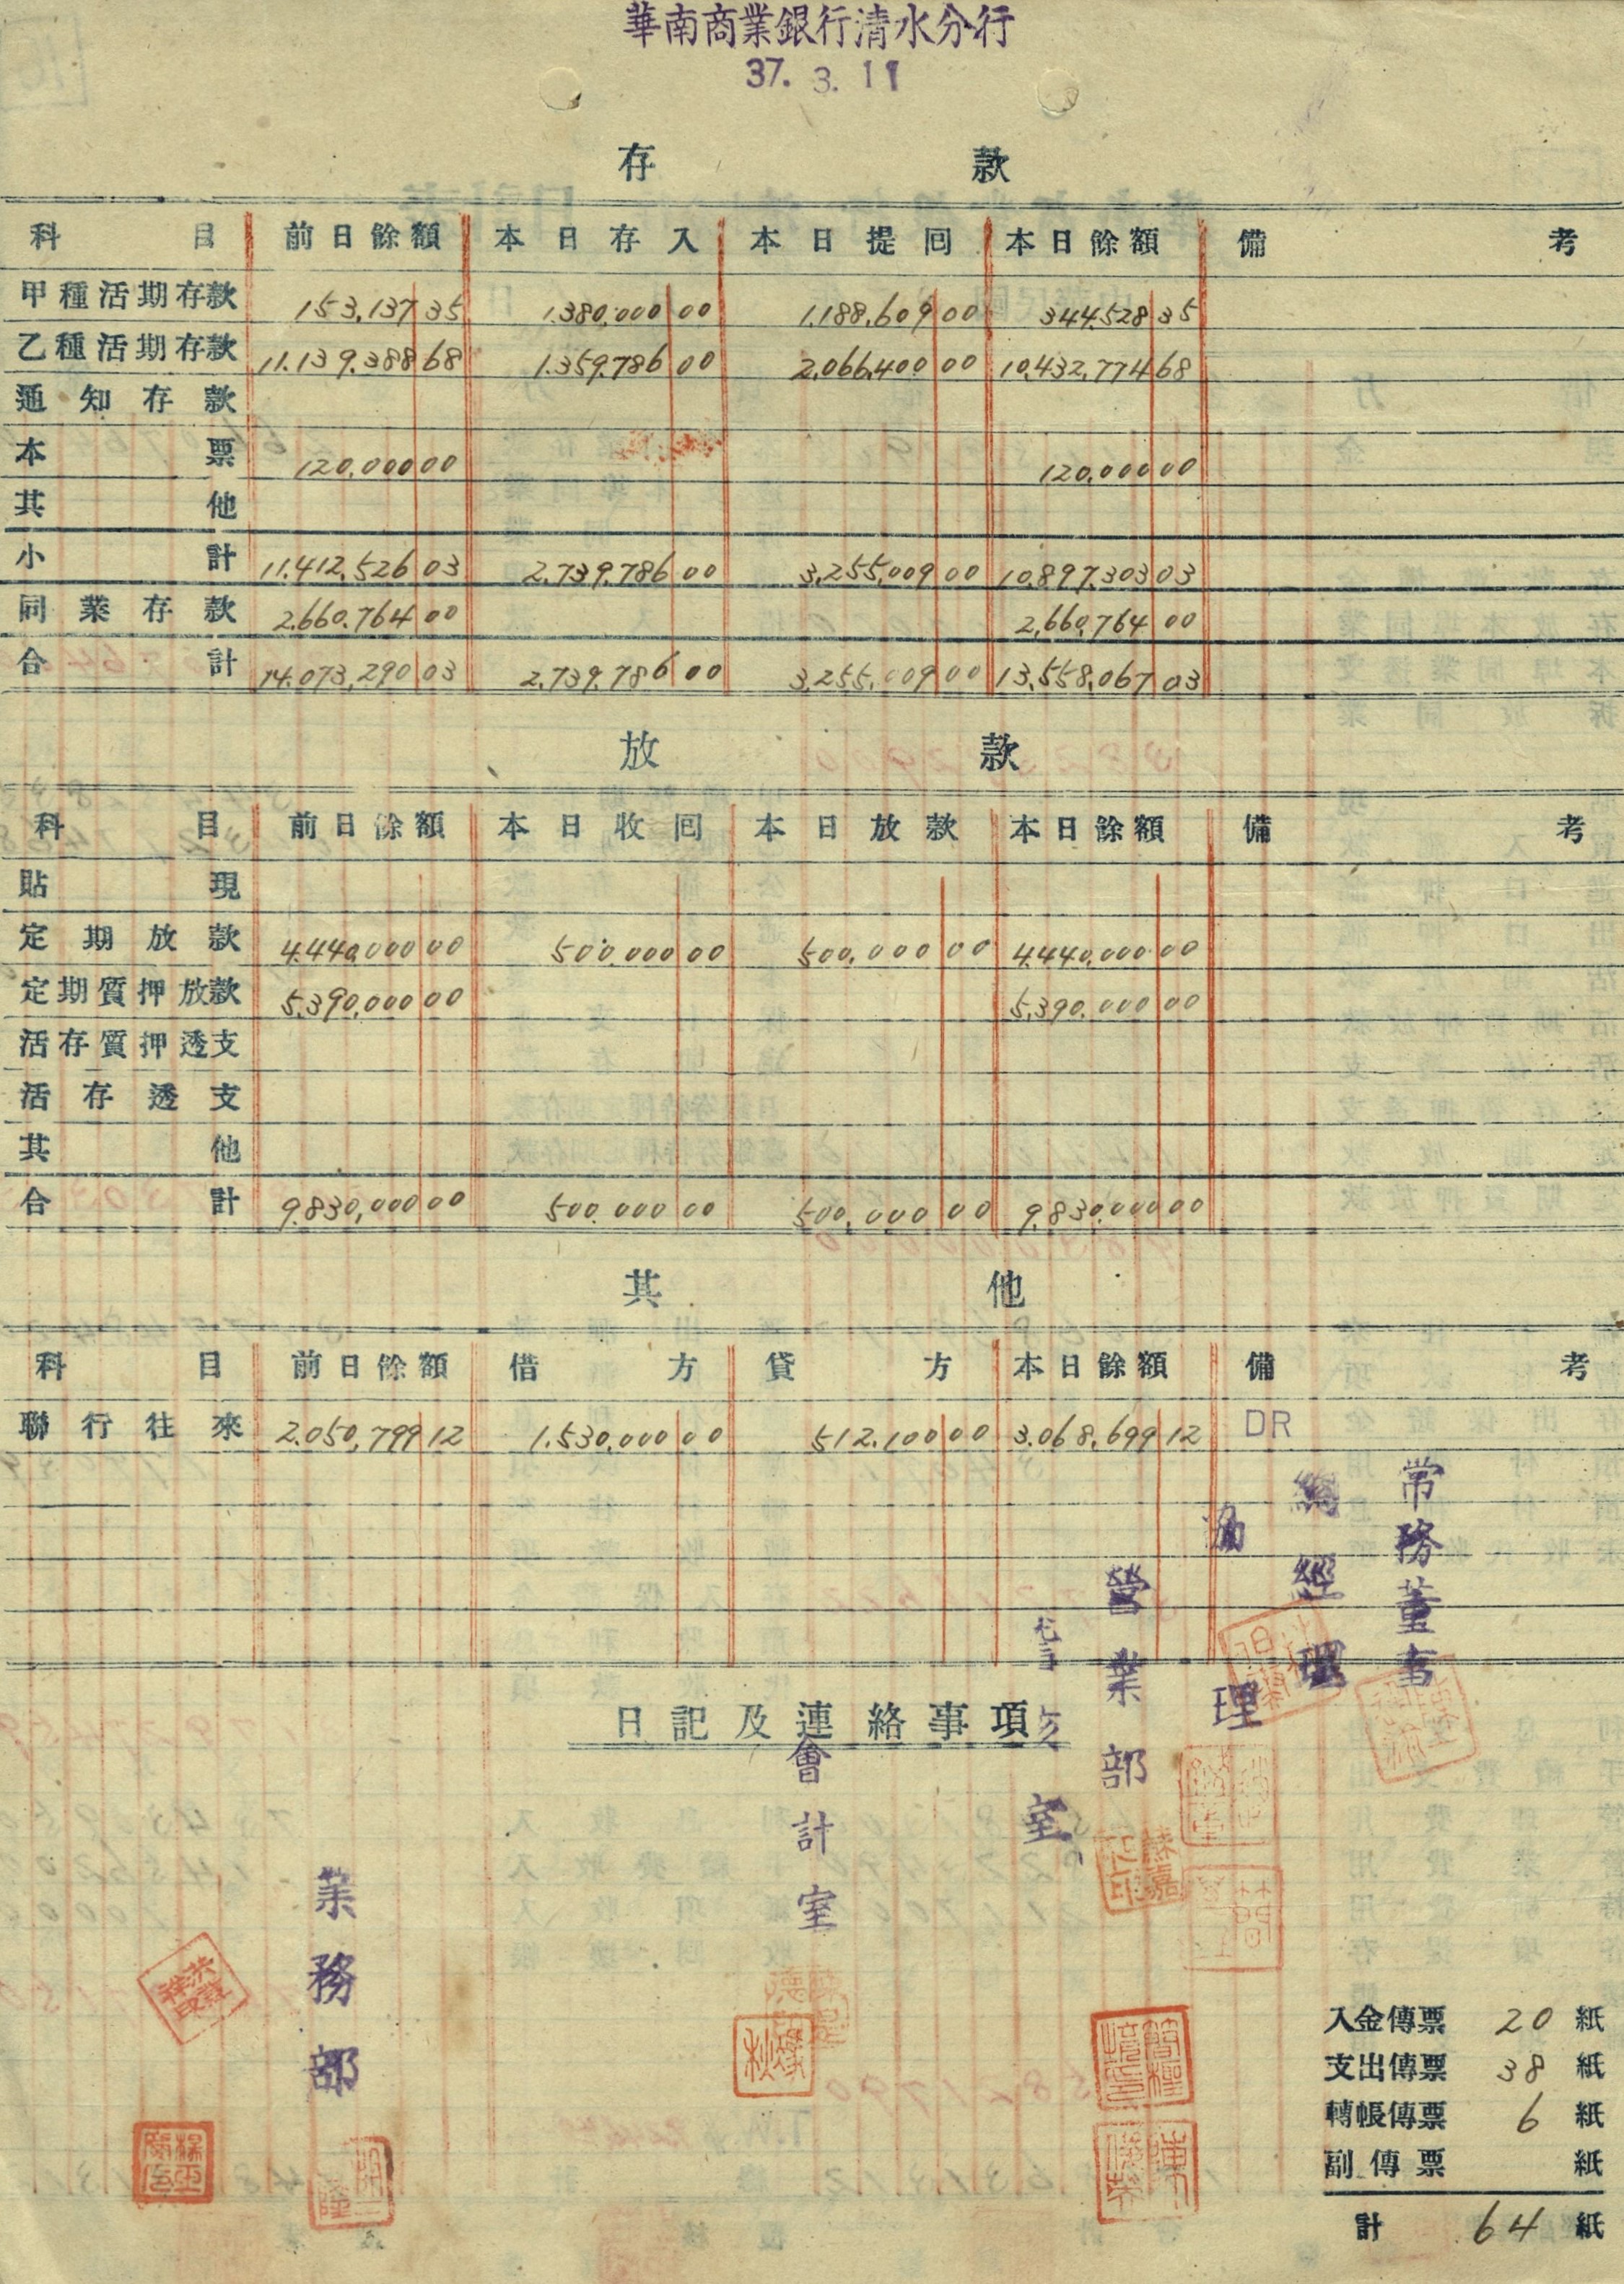 華南商業銀行清水分行
37. 3. 11
存款
科目 前日餘額 本日存入 本日提囘 本日餘額 備考
甲種活期存款 153,137 35 1.380,000 00 1.188,609 00 344,528 35
乙種活期存款 11.139.388 68 1.359,786 00 2,066,400 00 10,432,774 68
通知存款
本票 120,000 00 120,000 00
其他
小計 11,412,526 03 2,739,786 00 3,255,009 00 10,897,303 03
同業存款 2,660,764 00 2,660,764 00
合計 14.073,290 03 2,739,786 00 3,255,009 00 13,558,067 03
放款
科目 前日餘額 本日收囘 本日放款 本日餘額 備考
貼現
定期放款 4,440,000 00 500,000 00 500,000 00 4,440,000 00
定期質押放款 5,390,000 00 5,390,000 00
活存質押透支
活存透支
其他
合計 9,830,000 00 500,000 00 500,000 00 9,830,000 00
其他
科目 前日餘額 借方 貸方 本日餘額 備考
聯行往來 2,050,799 12 1,530,000 00 512,100 00 3,068,699 12 DR
常務董事
總經理
協理
營業部
室
日記及連絡事項
會計室
業務部
入金傳票 20 紙
支出傳票 38 紙
轉帳傳票 6 紙
副傳票 紙
計 64 紙